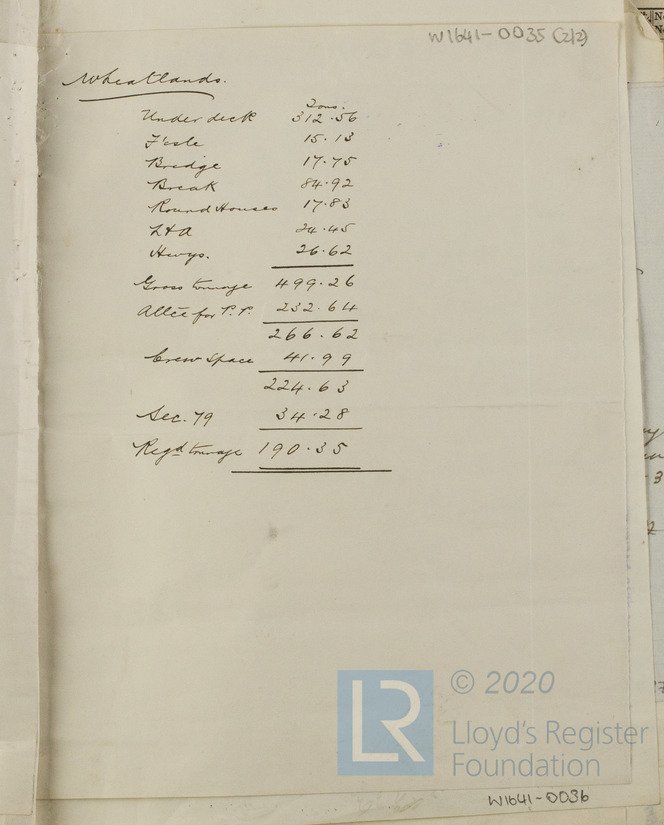 W1641-0035 (2/2)
Wheatlands.
Tons.
Under deck 312.56
F'csle 15.13
Bridge 17.75
Break 84.92
Round Houses 17.83
L&A 24.45
Hwys. 26.62
Gross tonnage 499.26
Allce for P.P. 232.64
266.62
Crew Space 41.99
224.63
Sec. 79 34.28
Regd tonnage 190.35
LR
© 2020
Lloyd's Register
Foundation
W1641-0036